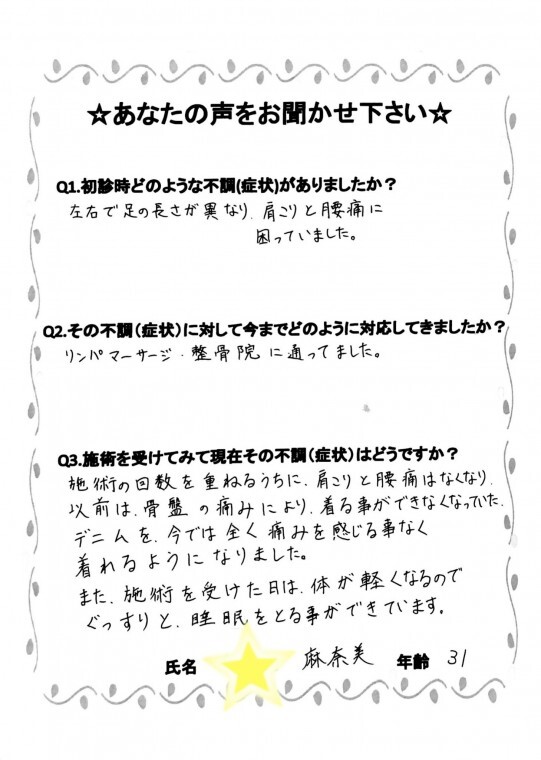 ☆あなたの声をお聞かせ下さい☆
Q1.初診時どのような不調(症状)がありましたか？
左右で足の長さが異なり、肩こりと腰痛に
困っていました。
Q2.その不調（症状）に対して今までどのように対応してきましたか？
リンパマーサージ・整骨院に通ってました。
Q3.施術を受けてみて現在その不調（症状）はどうですか？
施術の回数を重ねるうちに、肩こりと腰痛はなくなり、
以前は、骨盤の痛みにより、着る事ができなくなっていた、
デニムを、今では全く痛みを感じる事なく
着れるようになりました。
また、施術を受けた日は、体が軽くなるので
ぐっすりと、睡眠をとる事ができています。
氏名 麻奈美 年齢 31